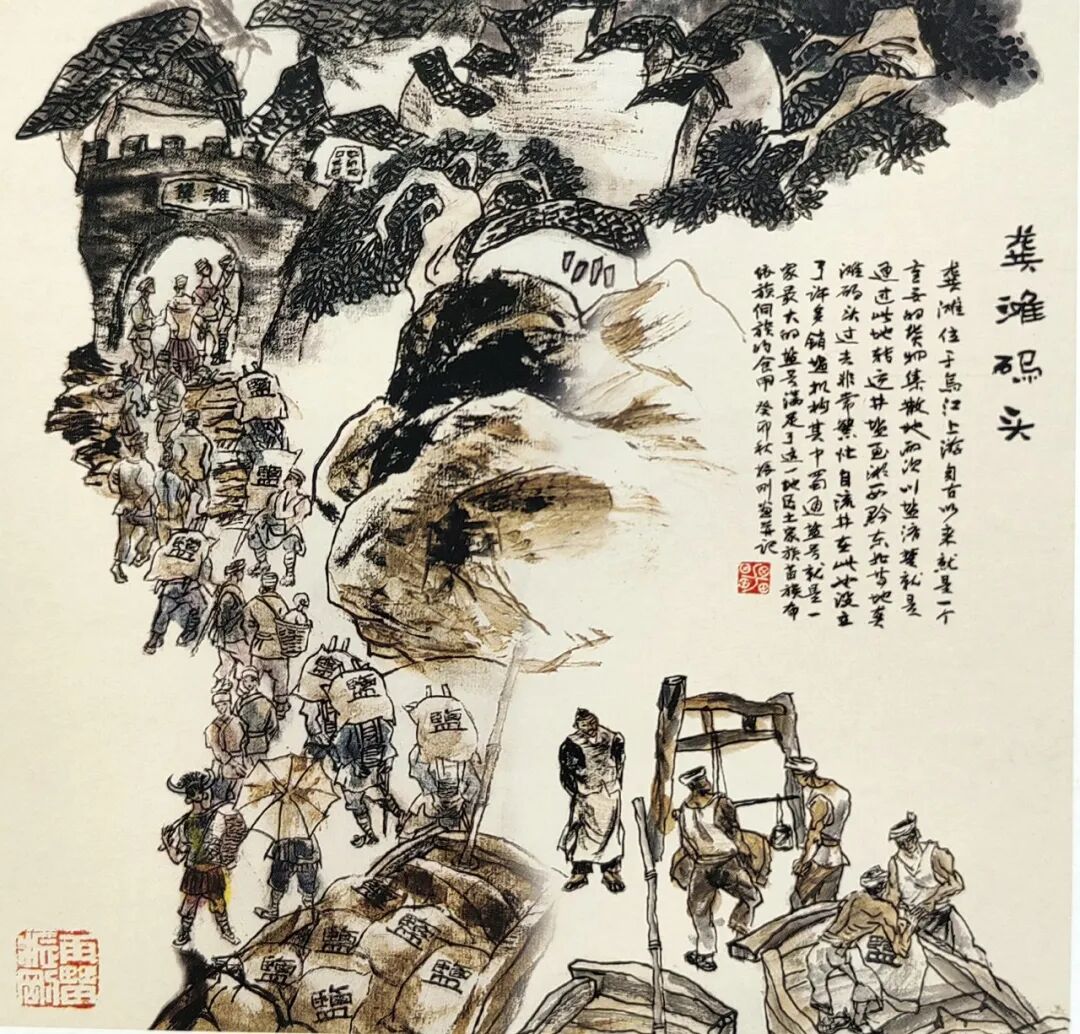 龚滩码头
龚滩位于乌江上游自古以来就是一个
重要的货物集散地两次川盐济楚就是
通过此地转运井盐至湘西黔东北等地龚
滩码头过去非常繁忙自流井在此地设立
了许多销盐机构其中蜀通盐号就是一
家最大的盐号满足了这一地区土家族苗族布
依族侗族的食用 癸卯秋振刚画并记
龚滩
鹽
鹽
鹽
鹽
鹽
鹽
鹽
鹽
鹽
鹽
鹽
鹽